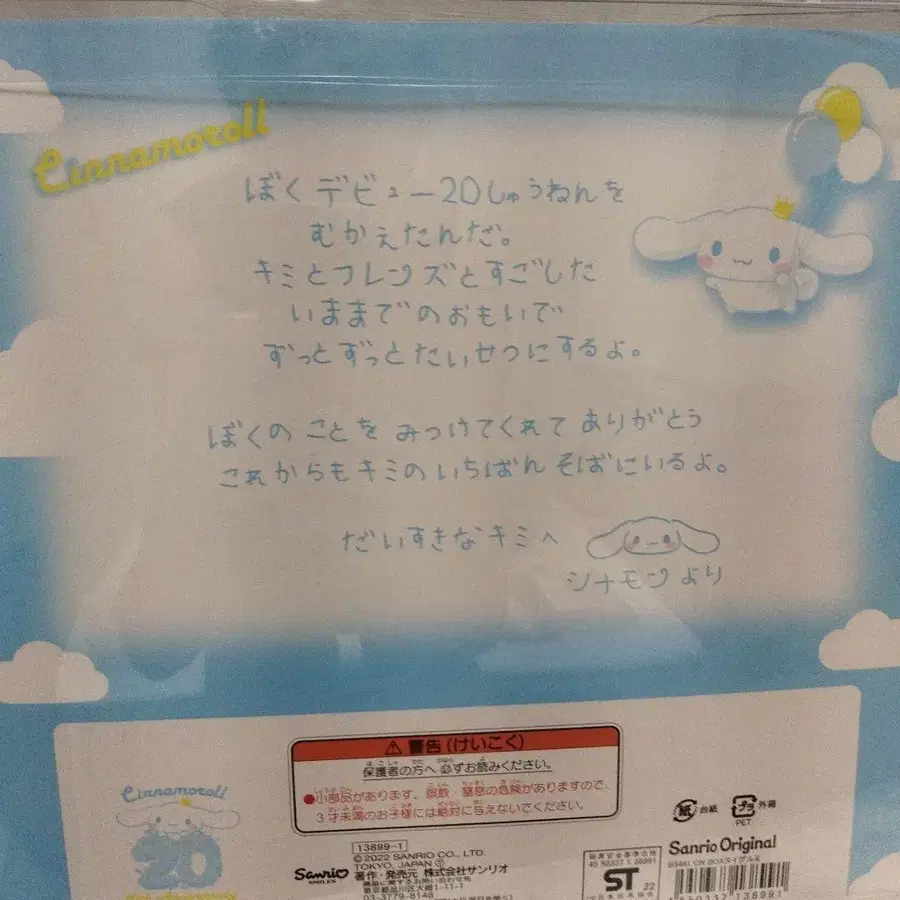 Cinnamoroll
ぼくデビュー20しゅうねんを
むかえたんだ。
キミとフレンズとすごした
いままでのおもいで
ずっとずっとたいせつにするよ。
ぼくのことをみつけてくれてありがとう
これからもキミのいちばんそばにいるよ。
だいすきなキミへ
シナモンより
警告(けいこく)
保護者の方へ必ずお読みください。
●小部品があります。誤飲、窒息の危険がありますので、
3才未満のお子様には絶対に与えないでください。
Cinnamoroll
20
13899-1
©2022 SANRIO CO., LTD.
TOKYO, JAPAN
Sanrio
SMILES
著作・発売元 株式会社サンリオ
東京都品川区大崎1-11-1
03-3779-8148
ST
22
紙 台紙
プラ 外箱
PET
Sanrio Original